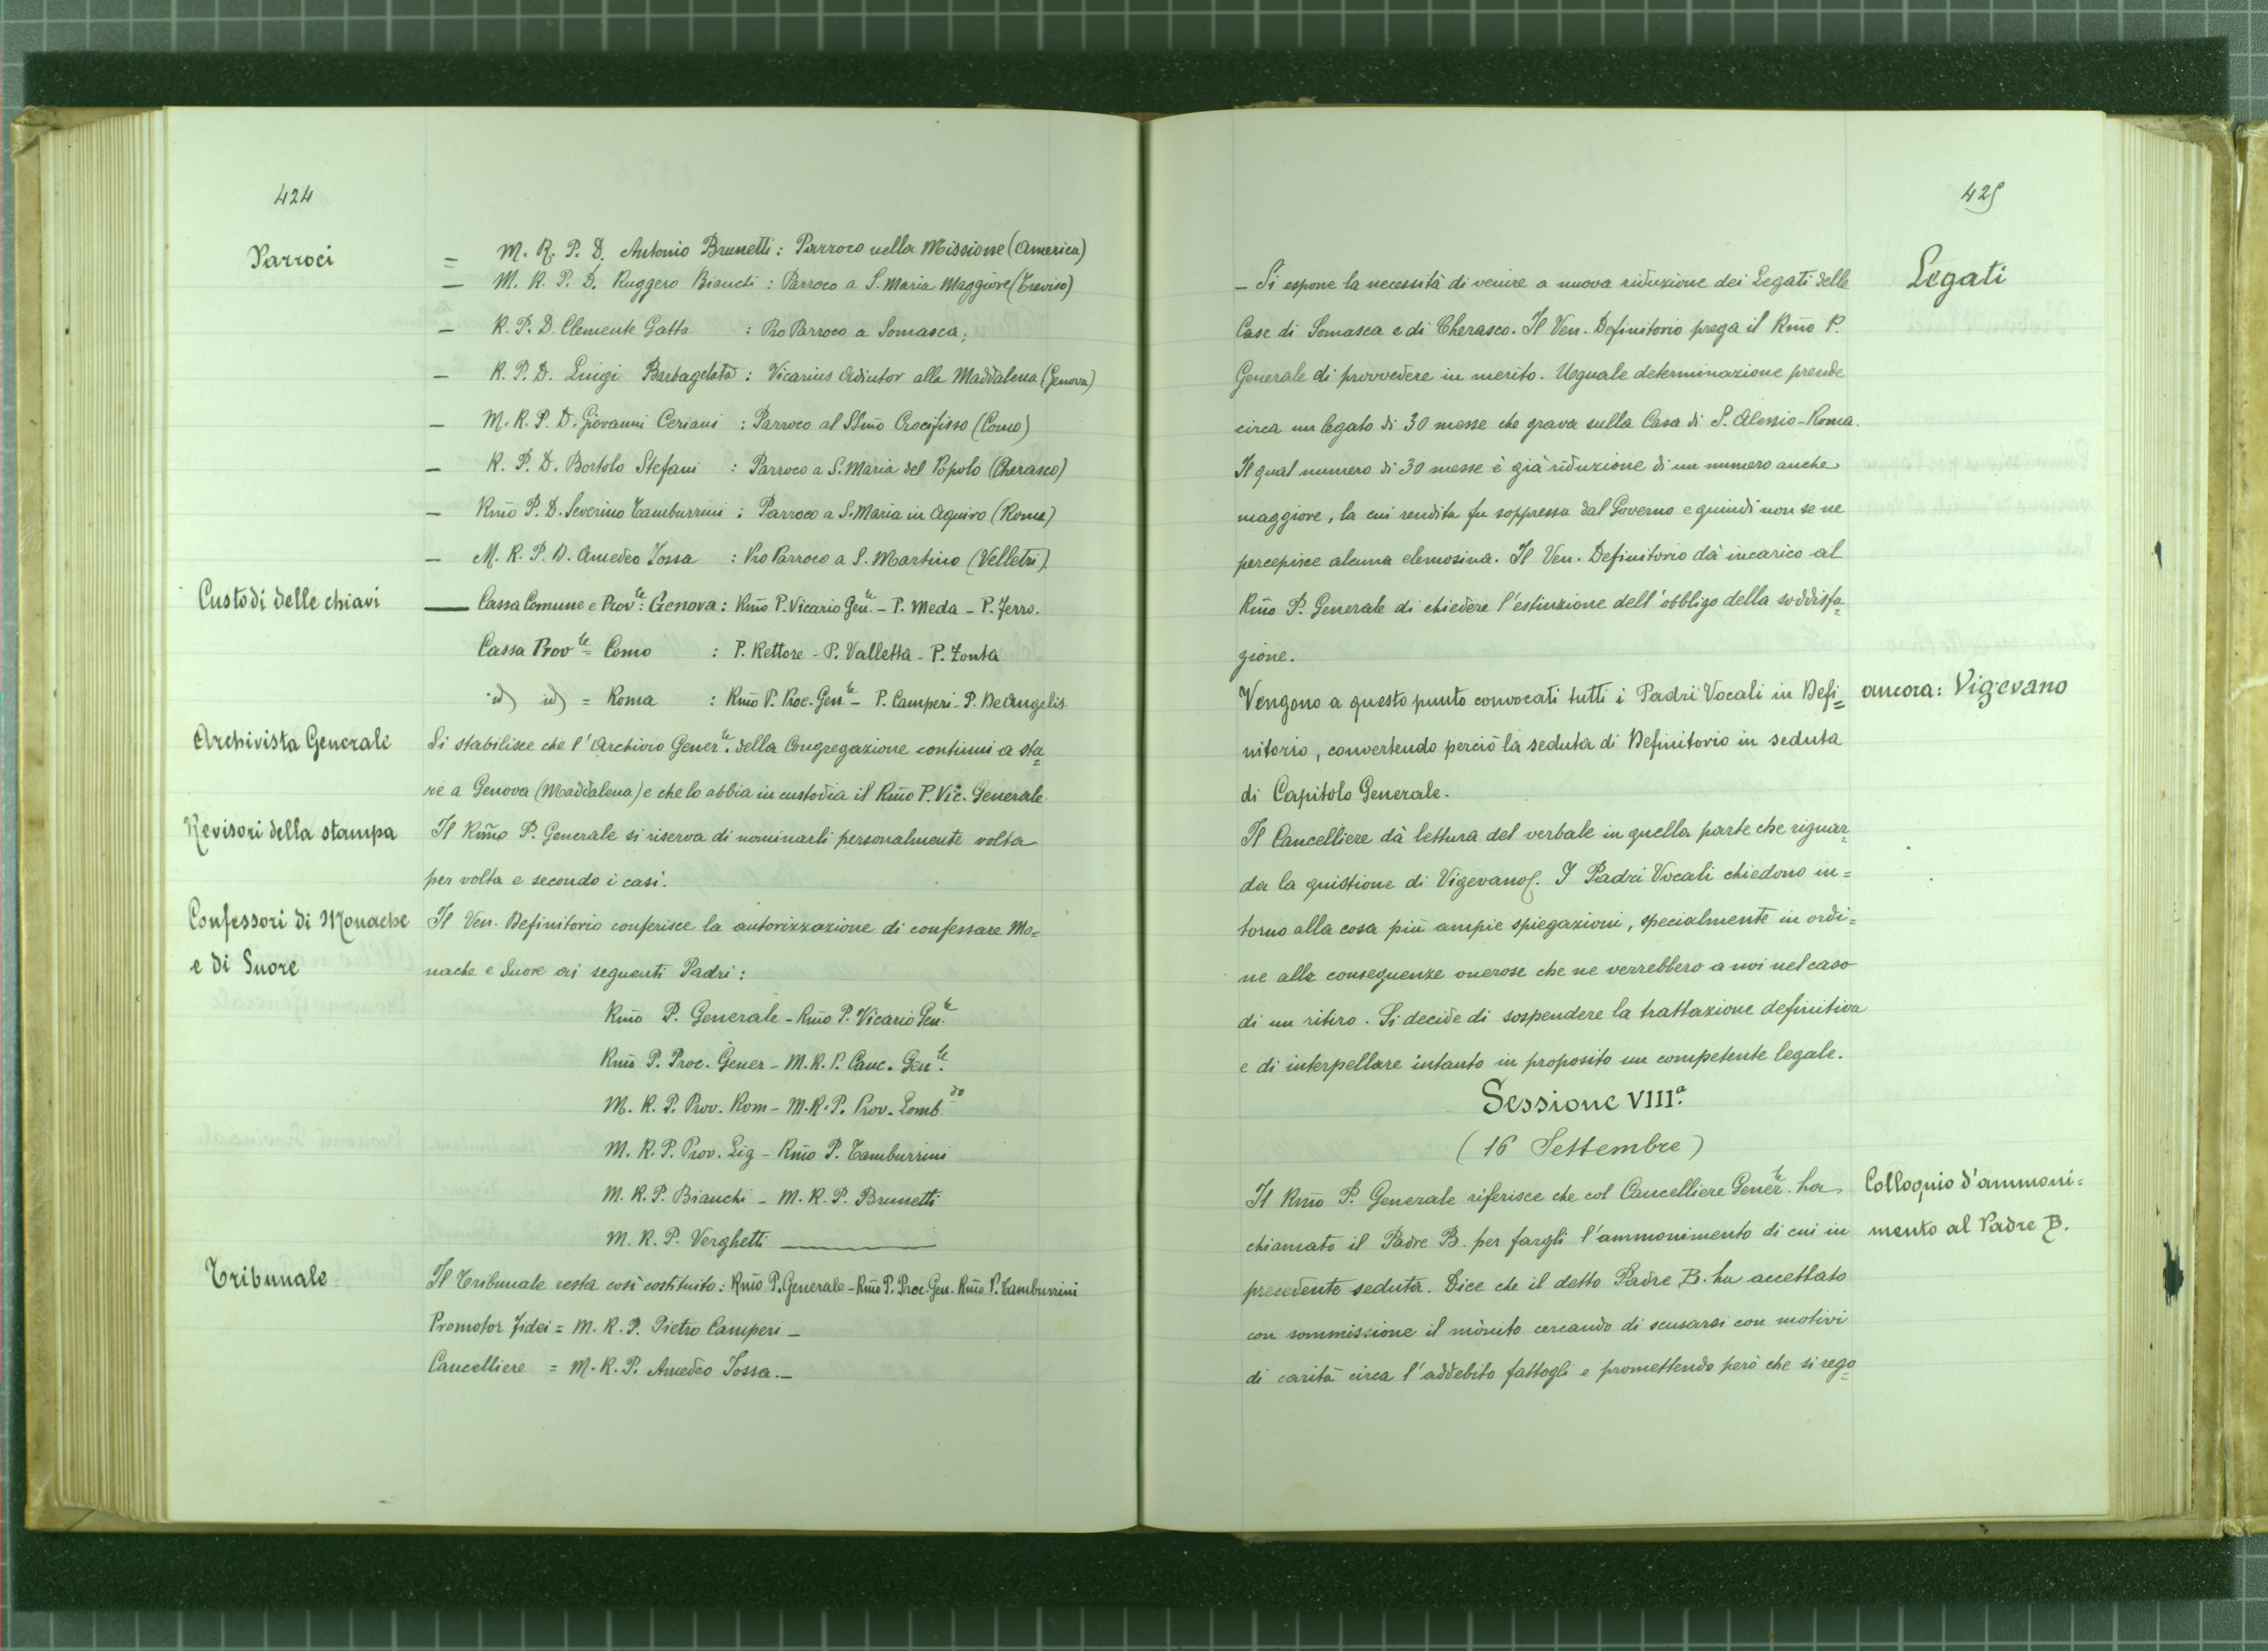 424
Parroci
= M. R. P. D. Antonio Brunetti : Parroco nella Missione (America)
— M. R. P. D. Ruggero Bianchi : Parroco a S. Maria Maggiore (Treviso)
— R. P. D. Clemente Gatto : Pro Parroco a Somasca;
— R. P. D. Luigi Barbagelata : Vicarius Adiutor alla Maddalena (Genova)
— M. R. P. D. Giovanni Ceriani : Parroco al SSmo Crocifisso (Como)
— R. P. D. Bortolo Stefani : Parroco a S. Maria del Popolo (Cherasco)
— Rmo P. D. Severino Tamburrini : Parroco a S. Maria in Aquiro (Roma)
— M. R. P. D. Amedeo Jossa : Pro Parroco a S. Martino (Velletri).
Custodi delle chiavi
— Cassa Comune e Prov.le : Genova : Rmo P. Vicario Gen.le - P. Meda - P. Ferro.
Cassa Prov.le = Como : P. Rettore - P. Valletta - P. Zonta
id) id) = Roma : Rmo P. Proc. Gen.le - P. Camperi - P. De Angelis.
Archivista Generale
Si stabilisce che l'Archivio Gener.le della Congregazione continui a sta=
re a Genova (Maddalena) e che lo abbia in custodia il Rmo P. Vic. Generale.
Revisori della stampa
Il Rmo P. Generale si riserva di nominarli personalmente volta
per volta e secondo i casi.
Confessori di Monache
e di Suore
Il Ven. Definitorio conferisce la autorizzazione di confessare Mo=
nache e Suore ai seguenti Padri :
Rmo P. Generale - Rmo P. Vicario Gen.le
Rmo P. Proc. Gener - M. R. P. Canc. Gen.le
M. R. P. Prov. Rom - M. R. P. Prov. Lomb.do
M. R. P. Prov. Lig - Rmo P. Tamburrini
M. R. P. Bianchi - M. R. P. Brunetti
M. R. P. Verghetti —
Tribunale
Il Tribunale resta così costituito : Rmo P. Generale - Rmo P. Proc. Gen. Rmo P. Tamburrini
Promotor Fidei = M. R. P. Pietro Camperi -
Cancelliere = M. R. P. Amedeo Jossa. -
425
Legati
- Si espone la necessità di venire a nuova riduzione dei Legati delle
Case di Somasca e di Cherasco. Il Ven. Definitorio prega il Rmo P.
Generale di provvedere in merito. Uguale determinazione prende
circa un legato di 30 messe che grava sulla Casa di S. Alessio - Roma.
Il qual numero di 30 messe è già riduzione di un numero anche
maggiore, la cui rendita fu soppressa dal Governo e quindi non se ne
percepisce alcuna elemosina. Il Ven. Definitorio dà incarico al
Rmo P. Generale di chiedere l'estinzione dell'obbligo della soddisfa=
zione.
ancora : Vigevano
Vengono a questo punto convocati tutti i Padri Vocali in Defi=
nitorio, convertendo perciò la seduta di Definitorio in seduta
di Capitolo Generale.
Il Cancelliere dà lettura del verbale in quella parte che riguar=
da la quistione di Vigevano. I Padri Vocali chiedono in=
torno alla cosa più ampie spiegazioni, specialmente in ordi=
ne alle conseguenze onerose che ne verrebbero a noi nel caso
di un ritiro. Si decide di sospendere la trattazione definitiva
e di interpellare intanto in proposito un competente legale.
Sessione VIII.a
(16 Settembre)
Colloquio d'ammoni=
mento al Padre B.
Il Rmo P. Generale riferisce che col Cancelliere Gener.le ha
chiamato il Padre B. per fargli l'ammonimento di cui in
precedente seduta. Dice che il detto Padre B. ha accettato
con sommissione il mònito cercando di scusarsi con motivi
di carità circa l'addebito fattogli e promettendo però che si rego=